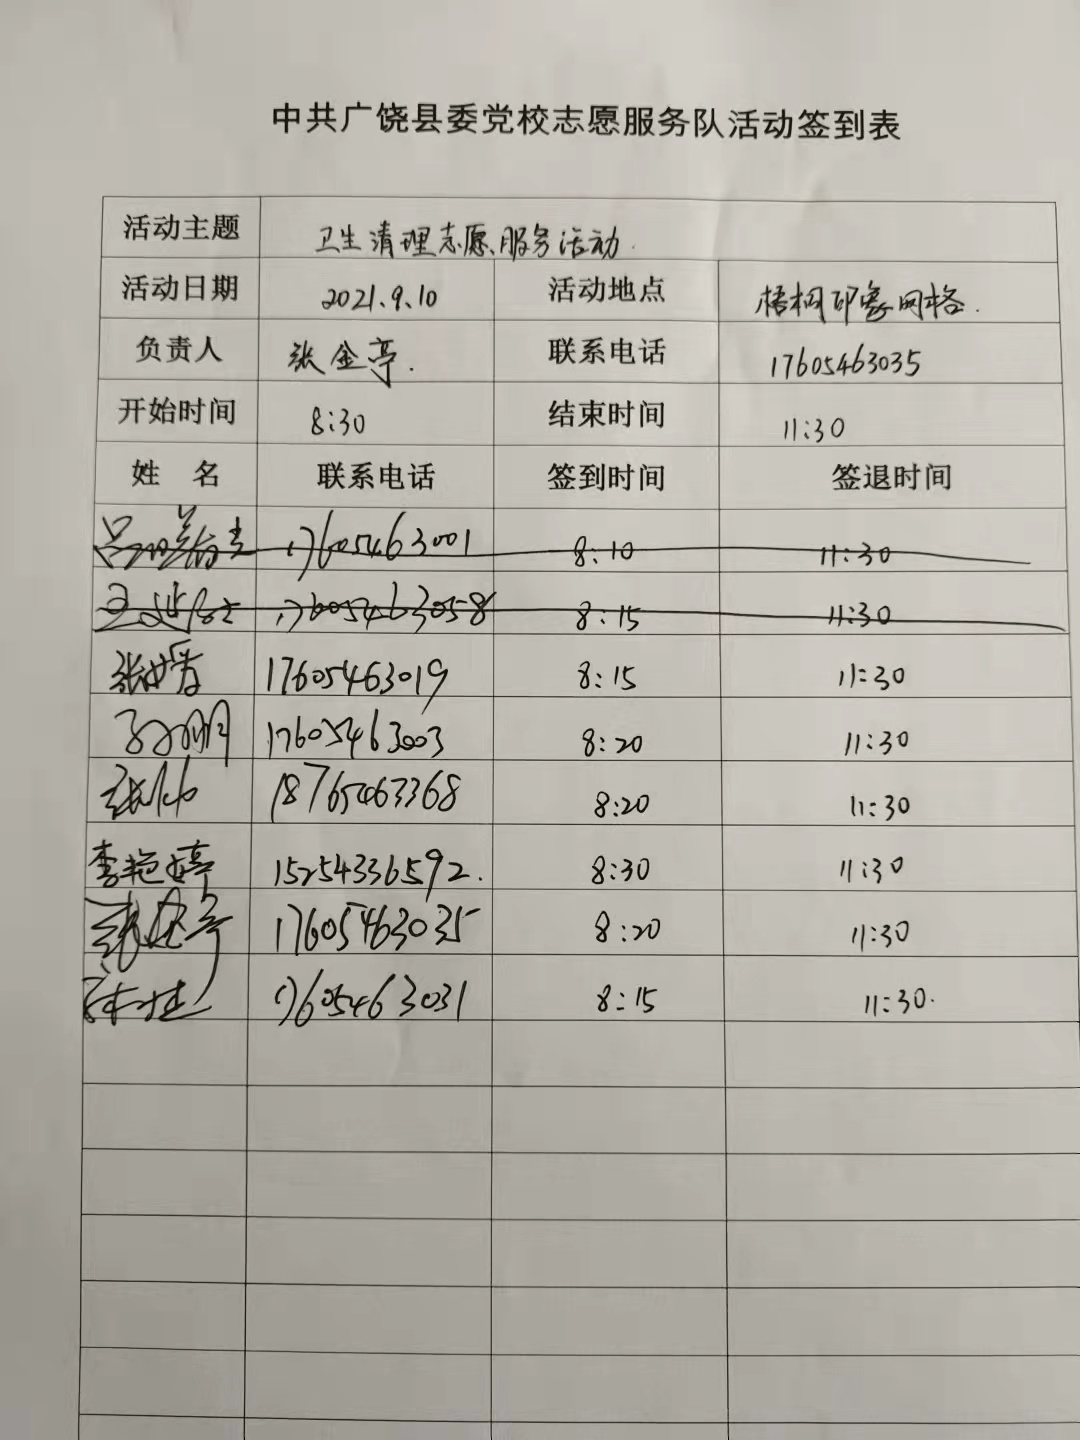 中共广饶县委党校志愿服务队活动签到表
活动主题 卫生清理志愿服务活动.
活动日期 2021.9.10 活动地点 梧桐印象网格.
负责人 张金亭. 联系电话 17605463035
开始时间 8:30 结束时间 11:30
姓 名 联系电话 签到时间 签退时间
17605463001 8:10 11:30
17605463058 8:15 11:30
17605463019 8:15 11:30
17605463003 8:20 11:30
18765463368 8:20 11:30
李艳婷 15254336592. 8:30 11:30
张金亭 17605463035 8:20 11:30
17605463031 8:15 11:30.